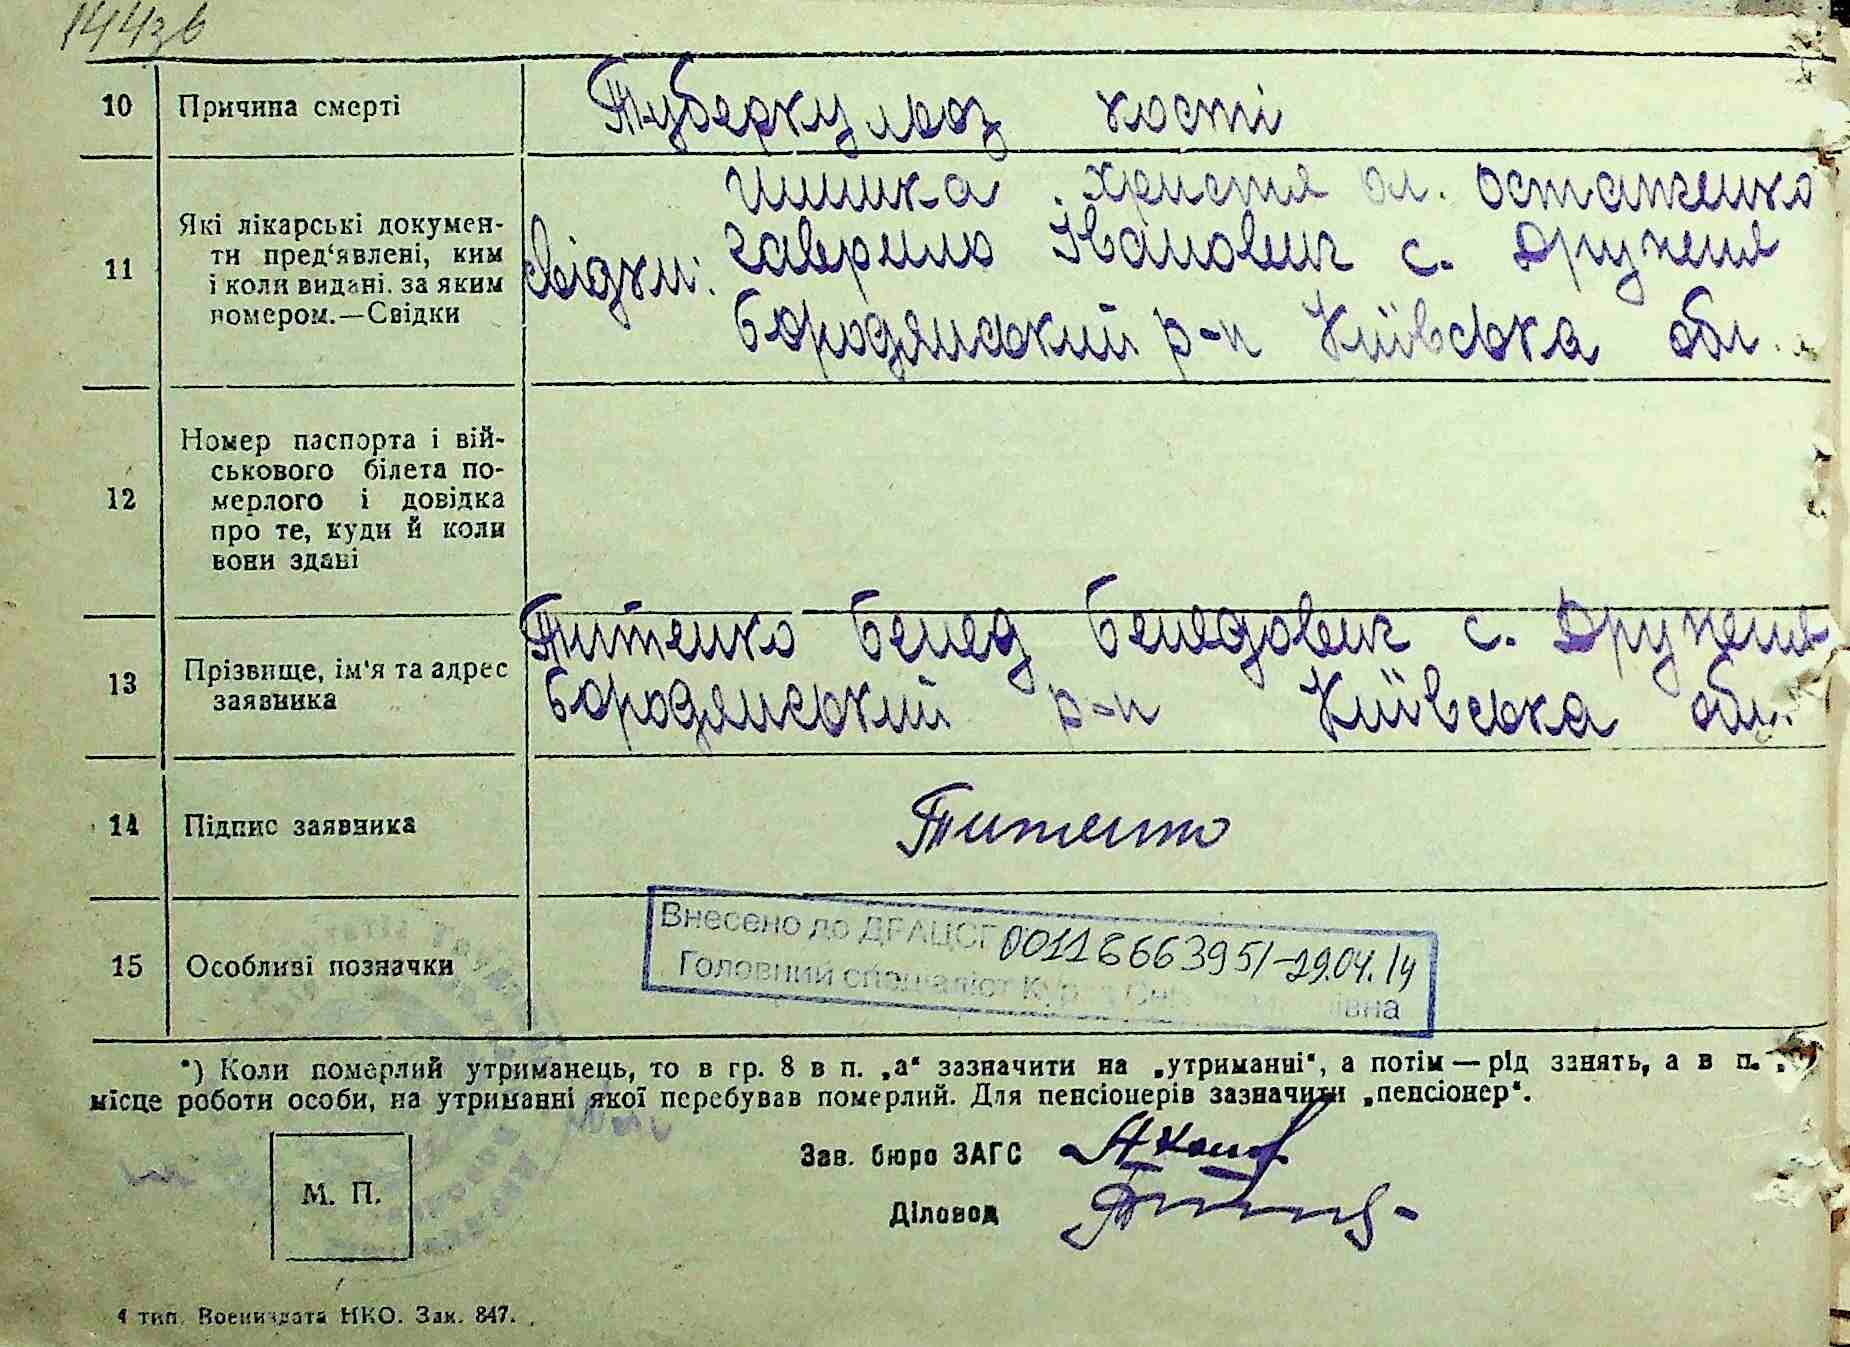 144зв
10 Причина смерті Туберкульоз кості
11 Які лікарські докумен-
ти пред'явлені, ким
і коли видані. за яким
номером.—Свідки
Свідки: Шишка Христя Ол. Остапенко
Гаврило Іванович с. Дружня
Бородянський р-н Київська обл.
12 Номер паспорта і вій-
ськового білета по-
мерлого і довідка
про те, куди й коли
вони здані
13 Прізвище, ім'я та адрес
заявника
Титенко Бенед Бенедович с. Дружня
Бородянський р-н Київська обл.
14 Підпис заявника Титенко
15 Особливі позначки
Внесено до ДРАЦСГ 00118663951-29.04.14
Головний спеціаліст
*) Коли померлий утриманець, то в гр. 8 в п. „а“ зазначити на „утриманні“, а потім — рід занять, а в п.
місце роботи особи, на утриманні якої перебував померлий. Для пенсіонерів зазначити „пенсіонер“.
М. П.
Зав. бюро ЗАГС
Діловод
4 тип. Воениздата НКО. Зак. 847.